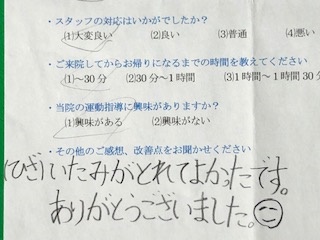 ・スタッフの対応はいかがでしたか?
(1)大変良い (2)良い (3)普通 (4)悪い
・ご来院してからお帰りになるまでの時間を教えてください
(1)~30分 (2)30分~1時間 (3)1時間~1時間30
・当院の運動指導に興味がありますか?
(1)興味がある (2)興味がない
・その他のご感想、改善点をお聞かせください
(ひざ)いたみがとれてよかったです。
ありがとうございました。